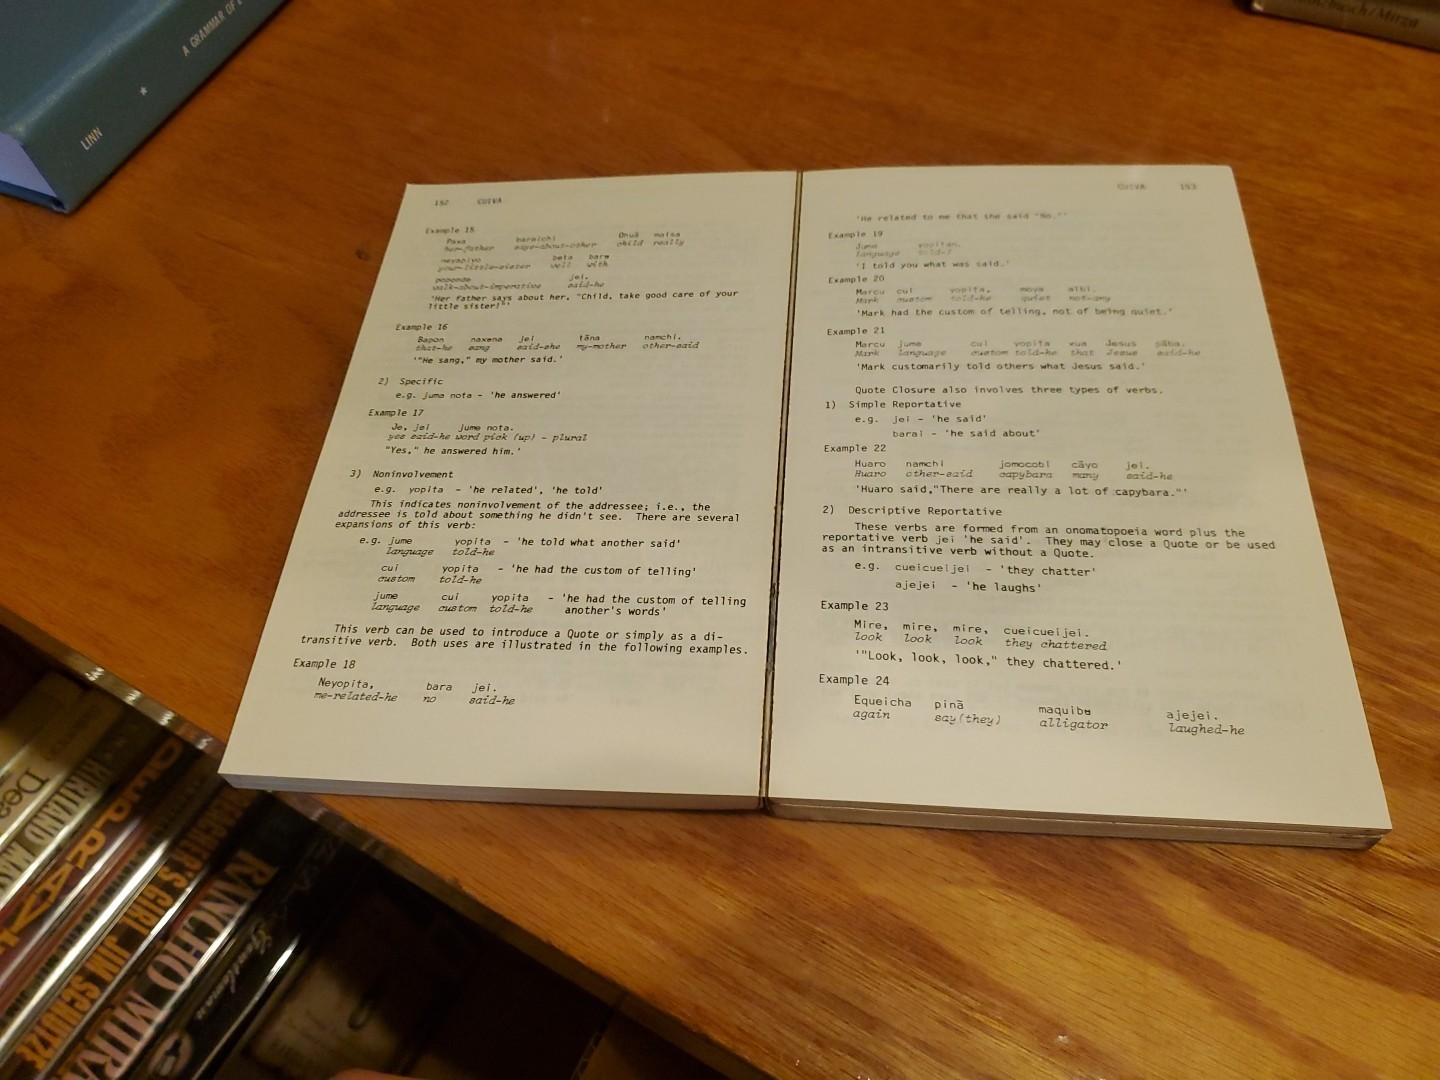 LINN
*
A GRAMMAR OF
152 CUIVA
Example 15
Paxa baraichi Onuã maisa
her-father says-about-other child really
neyapiyo beta bare
your-little-sister well with
poponde jei.
walk-about-imperative said-he
'Her father says about her, "Child, take good care of your
little sister!"'
Example 16
Bapon naxena jei tãna namchi.
that-he sang said-she my-mother other-said
'"He sang," my mother said.'
2) Specific
e.g. juma nota - 'he answered'
Example 17
Je, jei jume nota.
yes said-he word pick (up) - plural
"Yes," he answered him.'
3) Noninvolvement
e.g. yopita - 'he related', 'he told'
This indicates noninvolvement of the addressee; i.e., the
addressee is told about something he didn't see. There are several
expansions of this verb:
e.g. jume yopita - 'he told what another said'
language told-he
cui yopita - 'he had the custom of telling'
custom told-he
jume cui yopita - 'he had the custom of telling
language custom told-he another's words'
This verb can be used to introduce a Quote or simply as a di-
transitive verb. Both uses are illustrated in the following examples.
Example 18
Neyopita, bara jei.
me-related-he no said-he
CUIVA 153
'He related to me that she said "No."'
Example 19
Jume yopitan.
language told-I
'I told you what was said.'
Example 20
Marcu cui yopita, moya aibi.
Mark custom told-he quiet not-any
'Mark had the custom of telling, not of being quiet.'
Example 21
Marcu jume cui yopita xua Jesus pãba.
Mark language custom told-he that Jesus said-he
'Mark customarily told others what Jesus said.'
Quote Closure also involves three types of verbs.
1) Simple Reportative
e.g. jei - 'he said'
barai - 'he said about'
Example 22
Huaro namchi jomocobi cãyo jei.
Huaro other-said capybara many said-he
'Huaro said,"There are really a lot of capybara."'
2) Descriptive Reportative
These verbs are formed from an onomatopoeia word plus the
reportative verb jei 'he said'. They may close a Quote or be used
as an intransitive verb without a Quote.
e.g. cueicueijei - 'they chatter'
ajejei - 'he laughs'
Example 23
Mire, mire, mire, cueicueijei.
look look look they chattered
'"Look, look, look," they chattered.'
Example 24
Equeicha pinã maquibʉ ajejei.
again say(they) alligator laughed-he
KIRTLAND
GIRL JIN SCHUTZE
RANCHO MIRA
Gentlemen